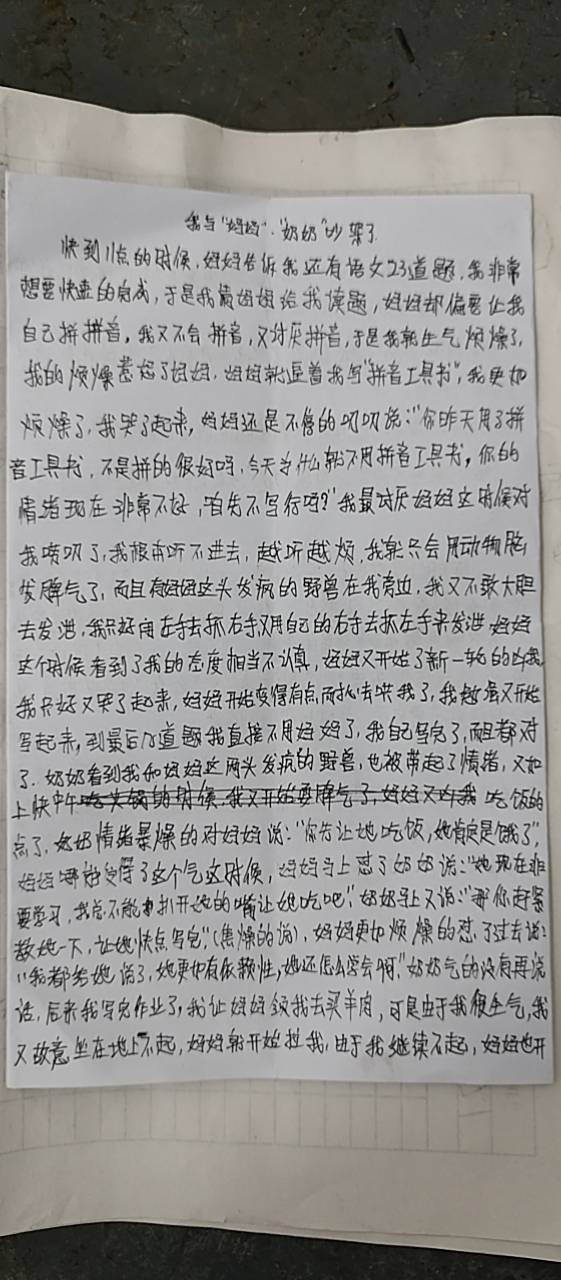 我与“妈妈”、“奶奶”吵架了
快到11点的时候，妈妈告诉我还有语文23道题，我非常
想要快速的完成，于是我请妈妈给我读题，妈妈却偏要让我
自己拼拼音，我又不会拼音，又讨厌拼音，于是我就生气烦燥了，
我的烦燥惹怒了妈妈，妈妈就逗着我写“拼音工具书”，我更加
烦燥了，我哭了起来，妈妈还是不停的叨叨说：“你昨天用了拼
音工具书，不是拼的很好吗，今天为什么就不用拼音工具书，你的
情绪现在非常不好，咱先不写行吗？”我最讨厌妈妈这时候对
我唠叨了，我根本听不进去，越听越烦，我就只会用动物脑
发脾气了，而且有妈妈这头发病的野兽在我旁边，我又不敢大胆
去发泄，我只好用左手去抓右手又用自己的右手去抓左手来发泄 妈妈
这个时候看到了我的态度相当不认真，妈妈又开始了新一轮的凶我
我只好又哭了起来，妈妈开始变得有点耐心去哄我了，我又开始
写起来，到最后几道题我直接不用妈妈了，我自己写完了，而且都对
了．奶奶看到我和妈妈这两头发病的野兽，也被带起了情绪，又加
上快中午吃饭的
点了，奶奶情绪暴燥的对妈妈说：“你先让她吃饭，她肯定是饿了”，
妈妈哪能受得了这个气这时候，妈妈马上怼了奶奶说：“她现在非
要学习，我总不能扒开她的嘴让她吃吧” 奶奶马上又说：“那你赶紧
教她一下，让她快点写完”，（焦燥的说），妈妈更加烦燥的怼了过去说：
“我都给她说了，她更加有依赖性，她还怎么学会啊，”奶奶气的没有再说
话，后来我写完作业了，我让妈妈领我去买羊肉，可是由于我很生气，我
又故意坐在地上不起，妈妈就开始拉我，由于我继续不起，妈妈也开